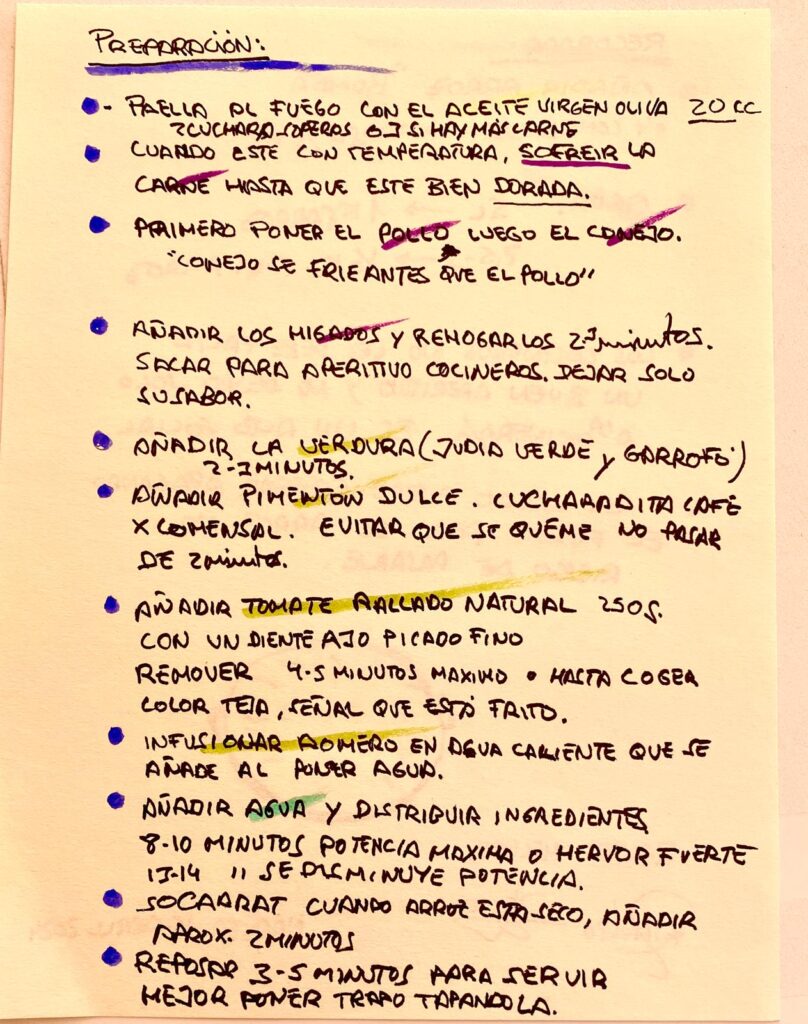 PREPARACIÓN:
- PAELLA AL FUEGO CON EL ACEITE VIRGEN OLIVA 20 CC
2 CUCHARA SOPEROS O 3 SI HAY MÁS CARNE
CUANDO ESTE CON TEMPERATURA, SOFREIR LA
CARNE HASTA QUE ESTE BIEN DORADA.
PRIMERO PONER EL POLLO LUEGO EL CONEJO.
"CONEJO SE FRIE ANTES QUE EL POLLO"
AÑADIR LOS HIGADOS Y REHOGARLOS 2-3 minutos.
SACAR PARA APERITIVO COCINEROS. DEJAR SOLO
SU SABOR.
AÑADIR LA VERDURA (JUDIA VERDE y GARROFÓ)
2-3 MINUTOS.
AÑADIR PIMENTÓN DULCE. CUCHARADITA CAFÉ
X COMENSAL. EVITAR QUE SE QUEME NO PASAR
DE 2 minutos.
AÑADIR TOMATE RALLADO NATURAL 250g.
CON UN DIENTE AJO PICADO FINO
REMOVER 4-5 MINUTOS MAXIMO o HASTA COGER
COLOR TEJA, SEÑAL QUE ESTÁ FRITO.
INFUSIONAR ROMERO EN AGUA CALIENTE QUE SE
AÑADE AL PONER AGUA.
AÑADIR AGUA Y DISTRIBUIR INGREDIENTES
8-10 MINUTOS POTENCIA MAXIMA O HERVOR FUERTE
13-14 " SE DISMINUYE POTENCIA.
SOCARRAT CUANDO ARROZ ESTA SECO, AÑADIR
APROX. 2 MINUTOS
REPOSAR 3-5 MINUTOS PARA SERVIR
MEJOR PONER TRAPO TAPANDOLA.